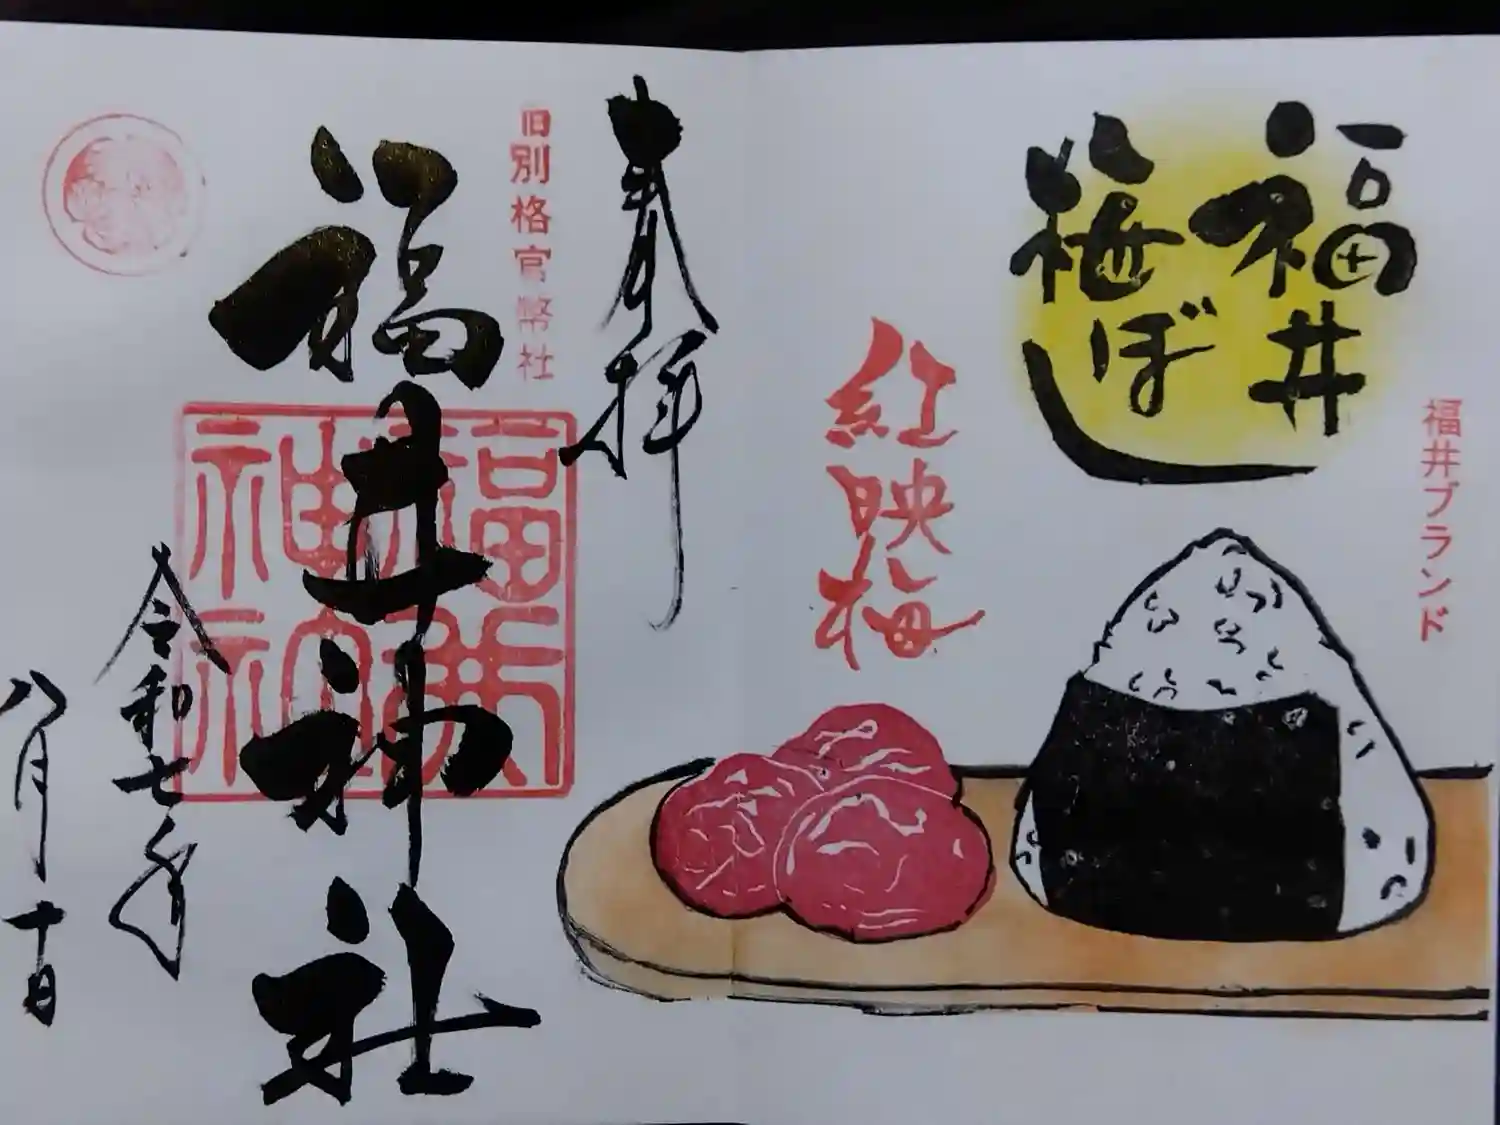 福井ブランド
福井
梅ぼし
紅映梅
奉拝
旧別格官幣社
福井神社
福井神社
令和七年
八月十日